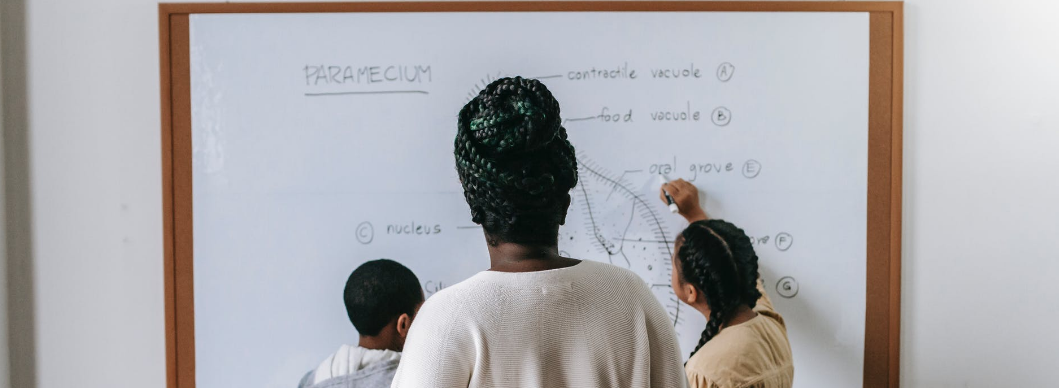 PARAMECIUM
contractile vacuole A
food vacuole B
oral grove E
C nucleus
F
G